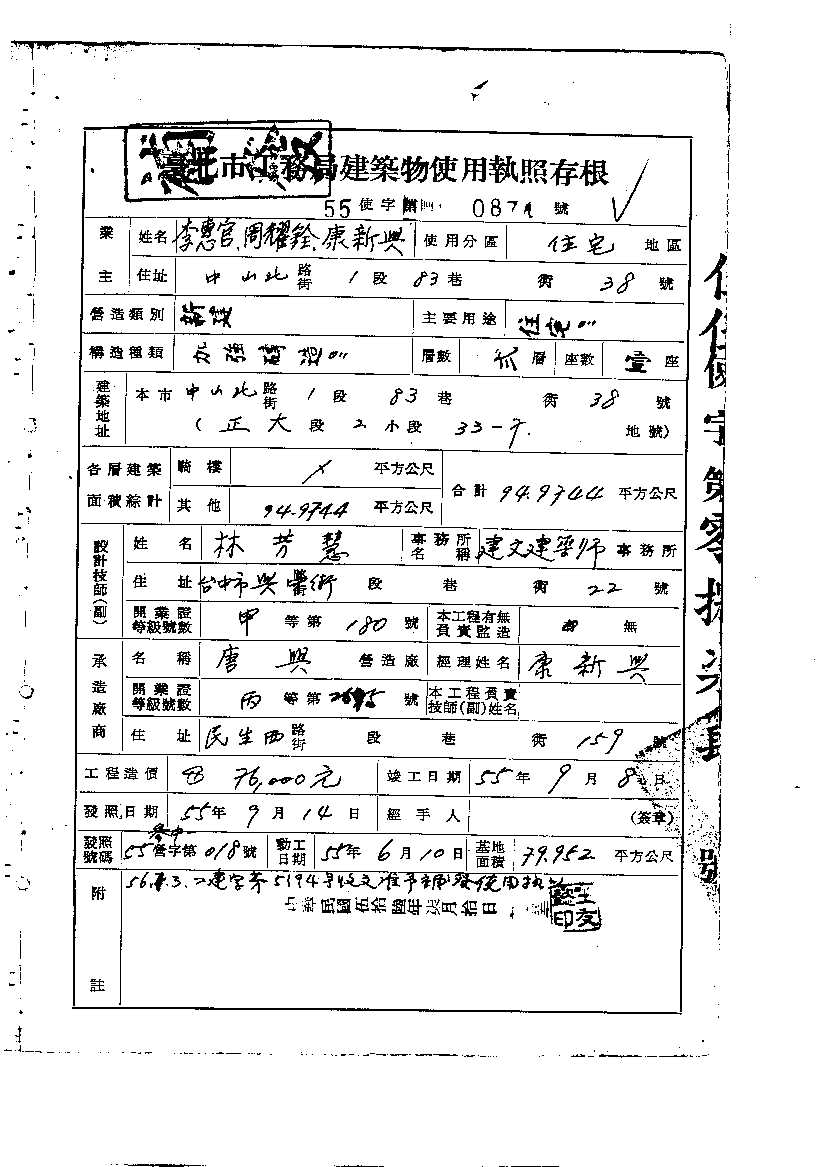 補發
臺北市工務局建築物使用執照存根
55 使字第 087 號
業主 姓名 李惠官、周耀銓、康新興 使用分區 住宅 地區
住址 中山北 路街 1 段 83 巷 街 38 號
營造類別 新建 主要用途 住宅
構造種類 加強磚造 層數 貳 層 座數 壹 座
建築地址 本市 中山北 路街 1 段 83 巷 街 38 號
( 正大 段 2 小段 33-7 地號)
各層建築面積綜計 騎樓 平方公尺 合計 94.9744 平方公尺
其他 94.9744 平方公尺
設計技師(副) 姓名 林芳慧 事務所名稱 建文建築師 事務所
住址 台中市興 街 段 巷 街 22 號
開業證等級號數 甲 等第 180 號 本工程有無負責監造 無
承造廠商 名稱 唐興 營造廠 經理姓名 康新興
開業證等級號數 丙 等第 號 本工程負責技師(副)姓名
住址 民生西 路街 段 巷 街 159 號
工程造價 76,000元 竣工日期 55 年 9 月 8 日
發照日期 55 年 9 月 14 日 經手人 (簽章)
發照號碼 55 營字第 018 號 動工日期 55 年 6 月 10 日 基地面積 79.952 平方公尺
附註 56.3.2建字第5194號收文准予補發使用執
中華民國伍拾 年 月拾日